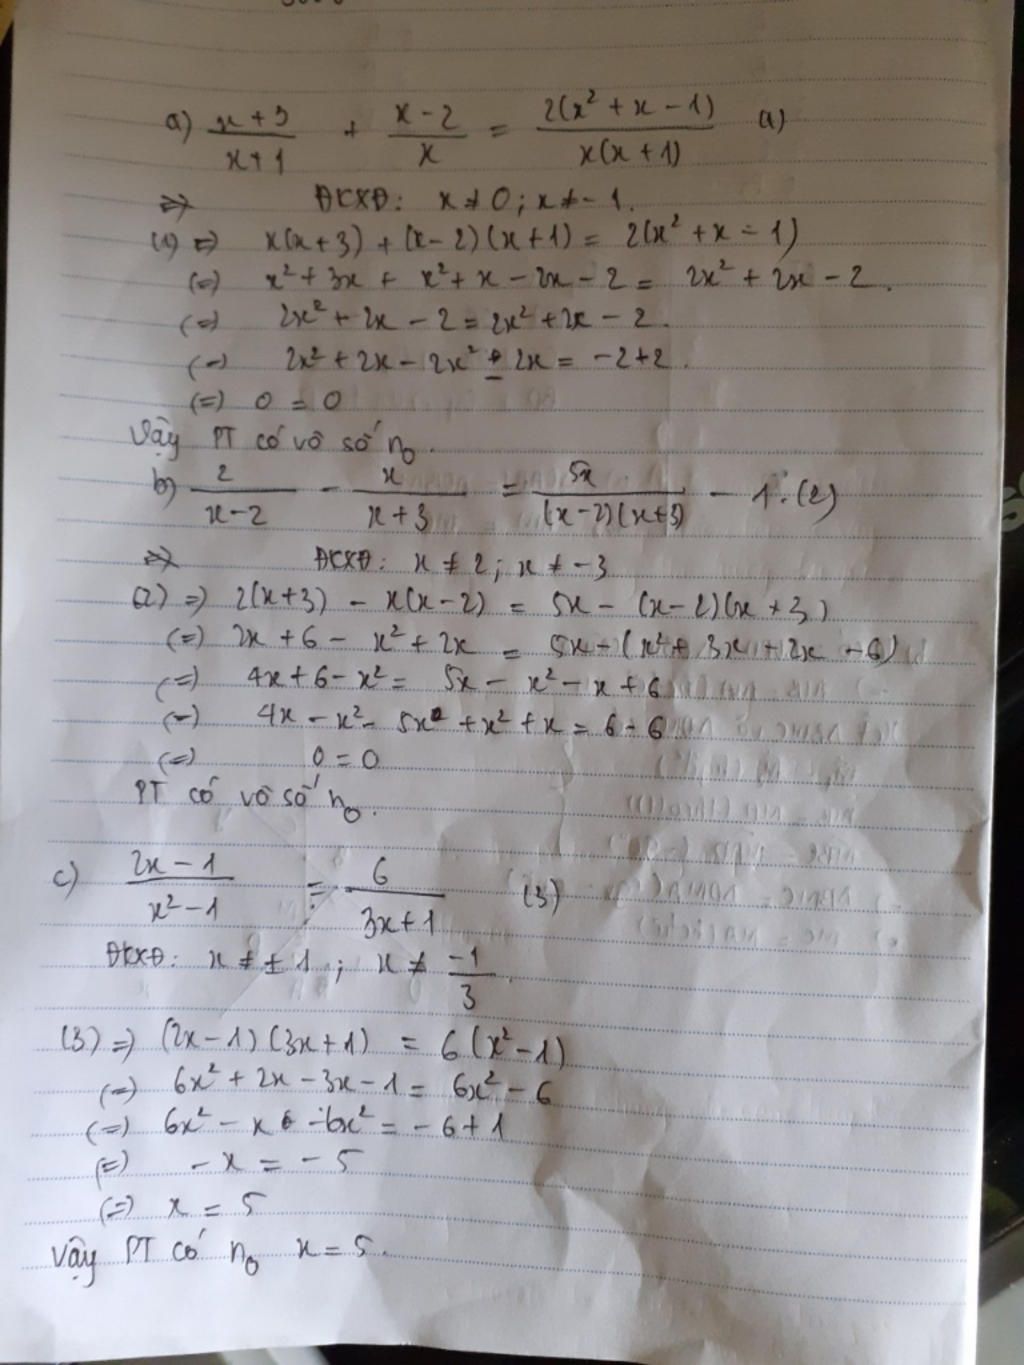 a) (x+3)/(x+1) + (x-2)/x = 2(x² + x - 1)/(x(x+1)) (1)
=> ĐKXĐ: x ≠ 0; x ≠ -1.
(1) => x(x+3) + (x-2)(x+1) = 2(x² + x - 1)
(=) x² + 3x + x² + x - 2x - 2 = 2x² + 2x - 2.
(=) 2x² + 2x - 2 = 2x² + 2x - 2.
(=) 2x² + 2x - 2x² - 2x = -2+2.
(=) 0 = 0
Vậy PT có vô số n₀.
b) 2/(x-2) - x/(x+3) = 5x/((x-2)(x+3)) - 1. (2)
=> ĐKXĐ: x ≠ 2; x ≠ -3
(2) => 2(x+3) - x(x-2) = 5x - (x-2)(x+3)
(=) 2x + 6 - x² + 2x = 5x - (x² + 3x - 2x - 6)
(=) 4x + 6 - x² = 5x - x² - x + 6
(=) 4x - x² - 5x + x² + x = 6 - 6
(=) 0 = 0
PT có vô số n₀.
c) (2x-1)/(x²-1) = 6/(3x+1) (3)
ĐKXĐ: x ≠ ±1; x ≠ -1/3.
(3) => (2x-1)(3x+1) = 6(x²-1)
(=) 6x² + 2x - 3x - 1 = 6x² - 6
(=) 6x² - x - 6x² = -6+1
(=) -x = -5
(=) x = 5
Vậy PT có n₀ x = 5.